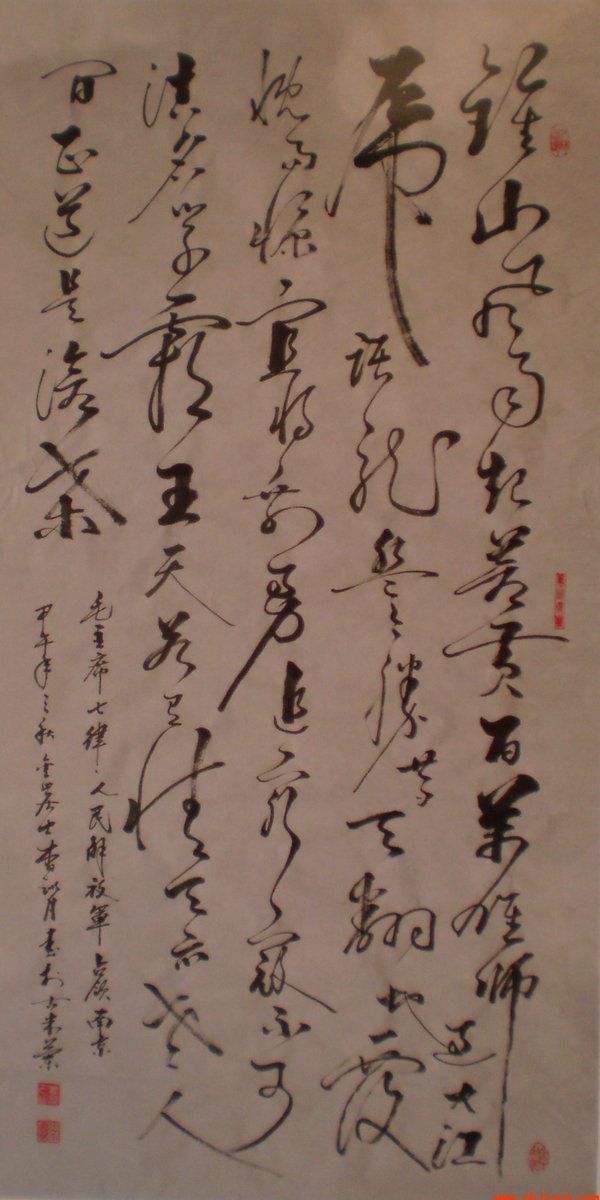 鍾山风雨起苍黄百万雄师过大江
虎踞龙盘今胜昔天翻地覆
慨而慷宜将剩勇追穷寇不可
沽名学霸王天若有情天亦老人
间正道是沧桑
毛主席七律、人民解放军占领南京
甲午年之秋 书於